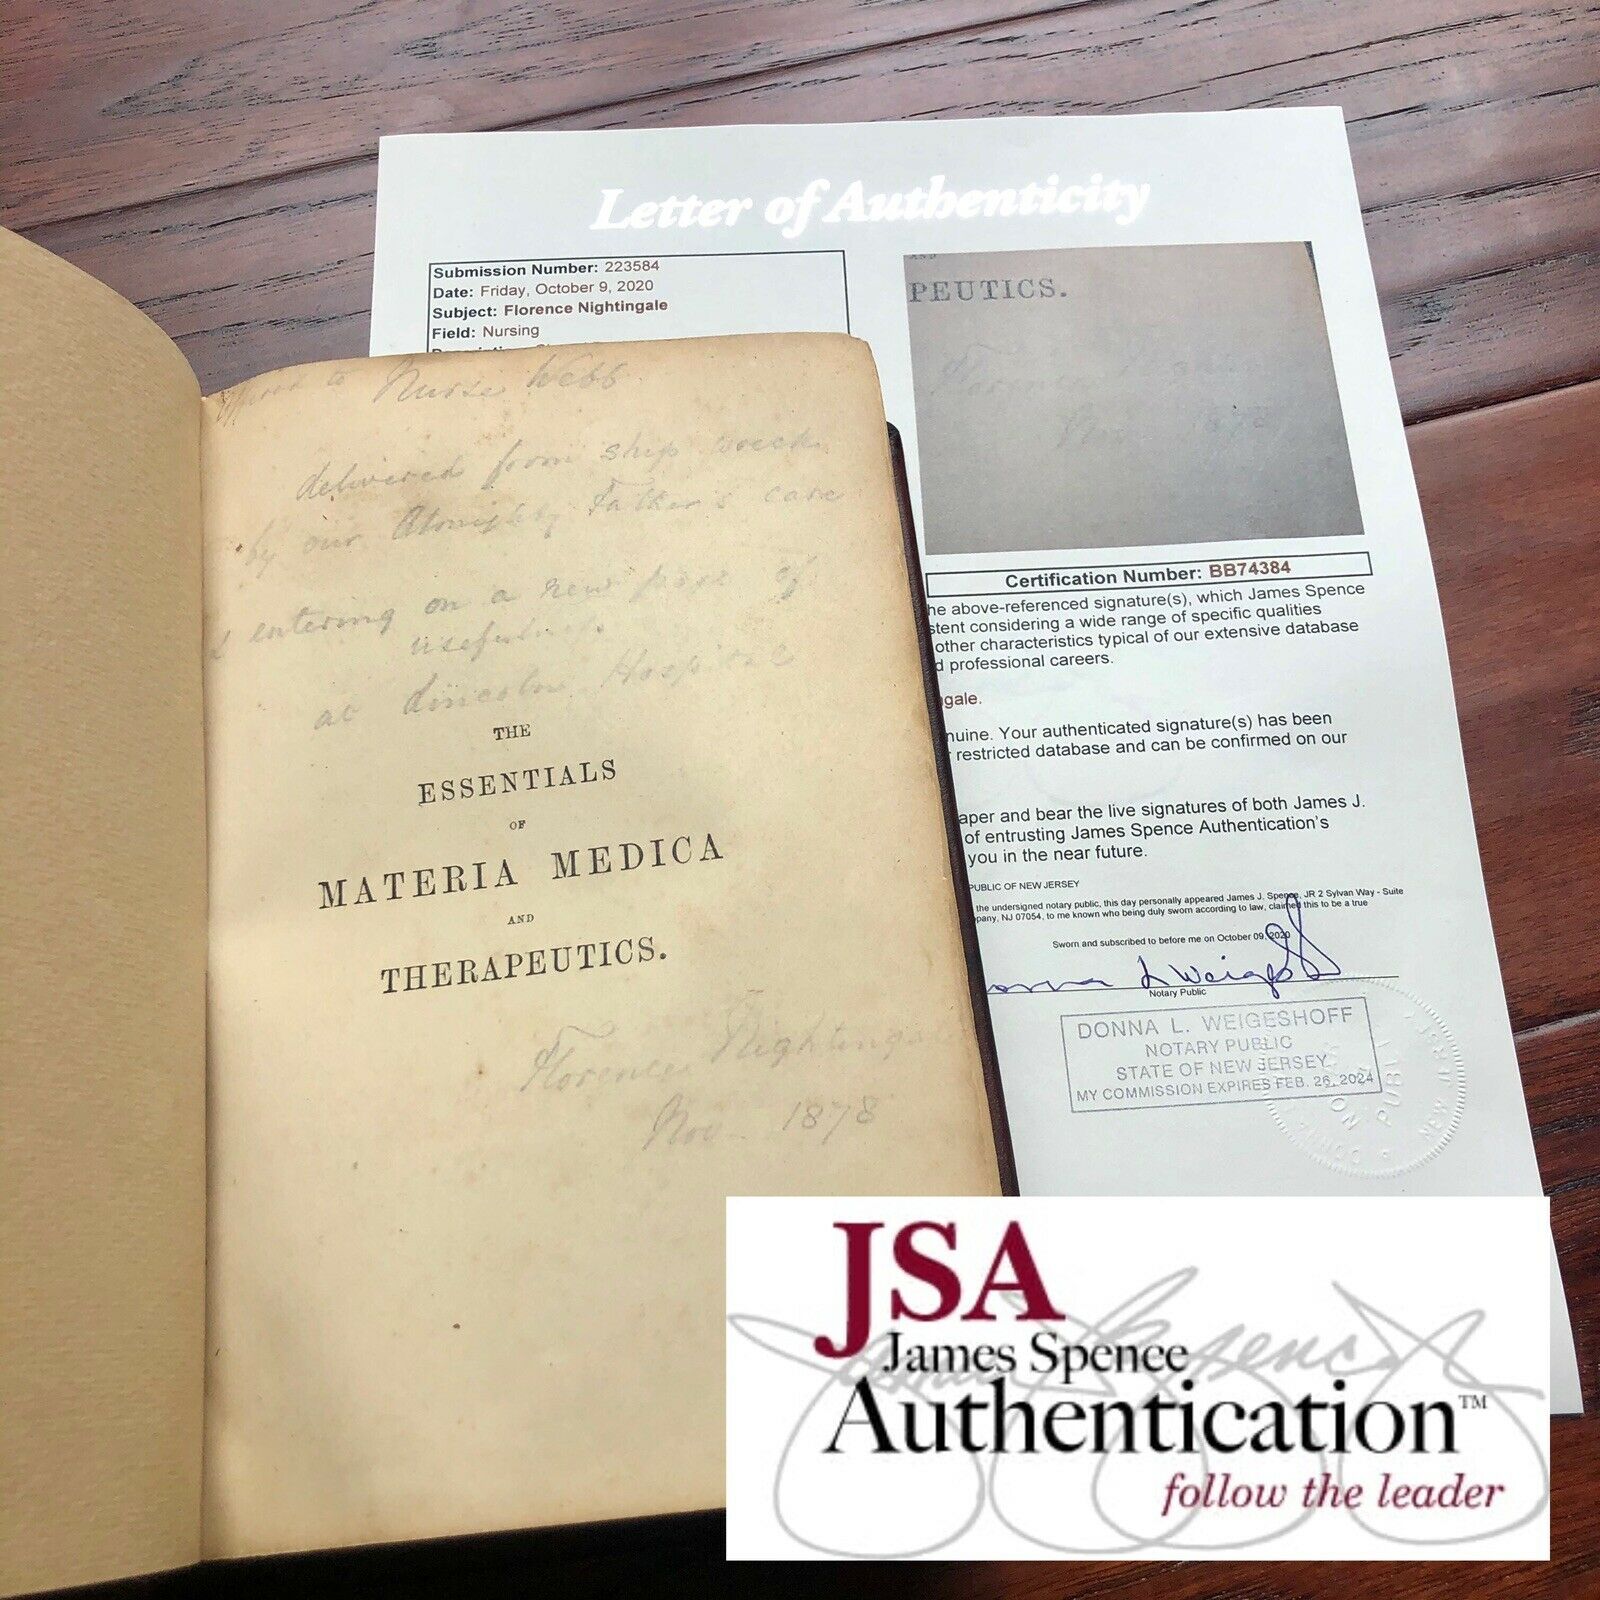 to Nurse Webb
delivered from ship wreck
by our Almighty Father's care
& entering on a new page of
usefulness
at Lincoln Hospital
THE
ESSENTIALS
OF
MATERIA MEDICA
AND
THERAPEUTICS.
Florence Nightingale
Nov 1878
Letter of Authenticity
Submission Number: 223584
Date: Friday, October 9, 2020
Subject: Florence Nightingale
Field: Nursing
AND
PEUTICS.
Florence
Nov 1878
Certification Number: BB74384
he above-referenced signature(s), which James Spence
stent considering a wide range of specific qualities
other characteristics typical of our extensive database
d professional careers.
gale.
nuine. Your authenticated signature(s) has been
restricted database and can be confirmed on our
aper and bear the live signatures of both James J.
of entrusting James Spence Authentication's
you in the near future.
PUBLIC OF NEW JERSEY
the undersigned notary public, this day personally appeared James J. Spence, JR 2 Sylvan Way - Suite
pany, NJ 07054, to me known who being duly sworn according to law, claimed this to be a true
Sworn and subscribed to before me on October 09, 2020
Notary Public
DONNA L. WEIGESHOFF
NOTARY PUBLIC
STATE OF NEW JERSEY
MY COMMISSION EXPIRES FEB. 26, 2024
JSA
James Spence
Authentication™
follow the leader